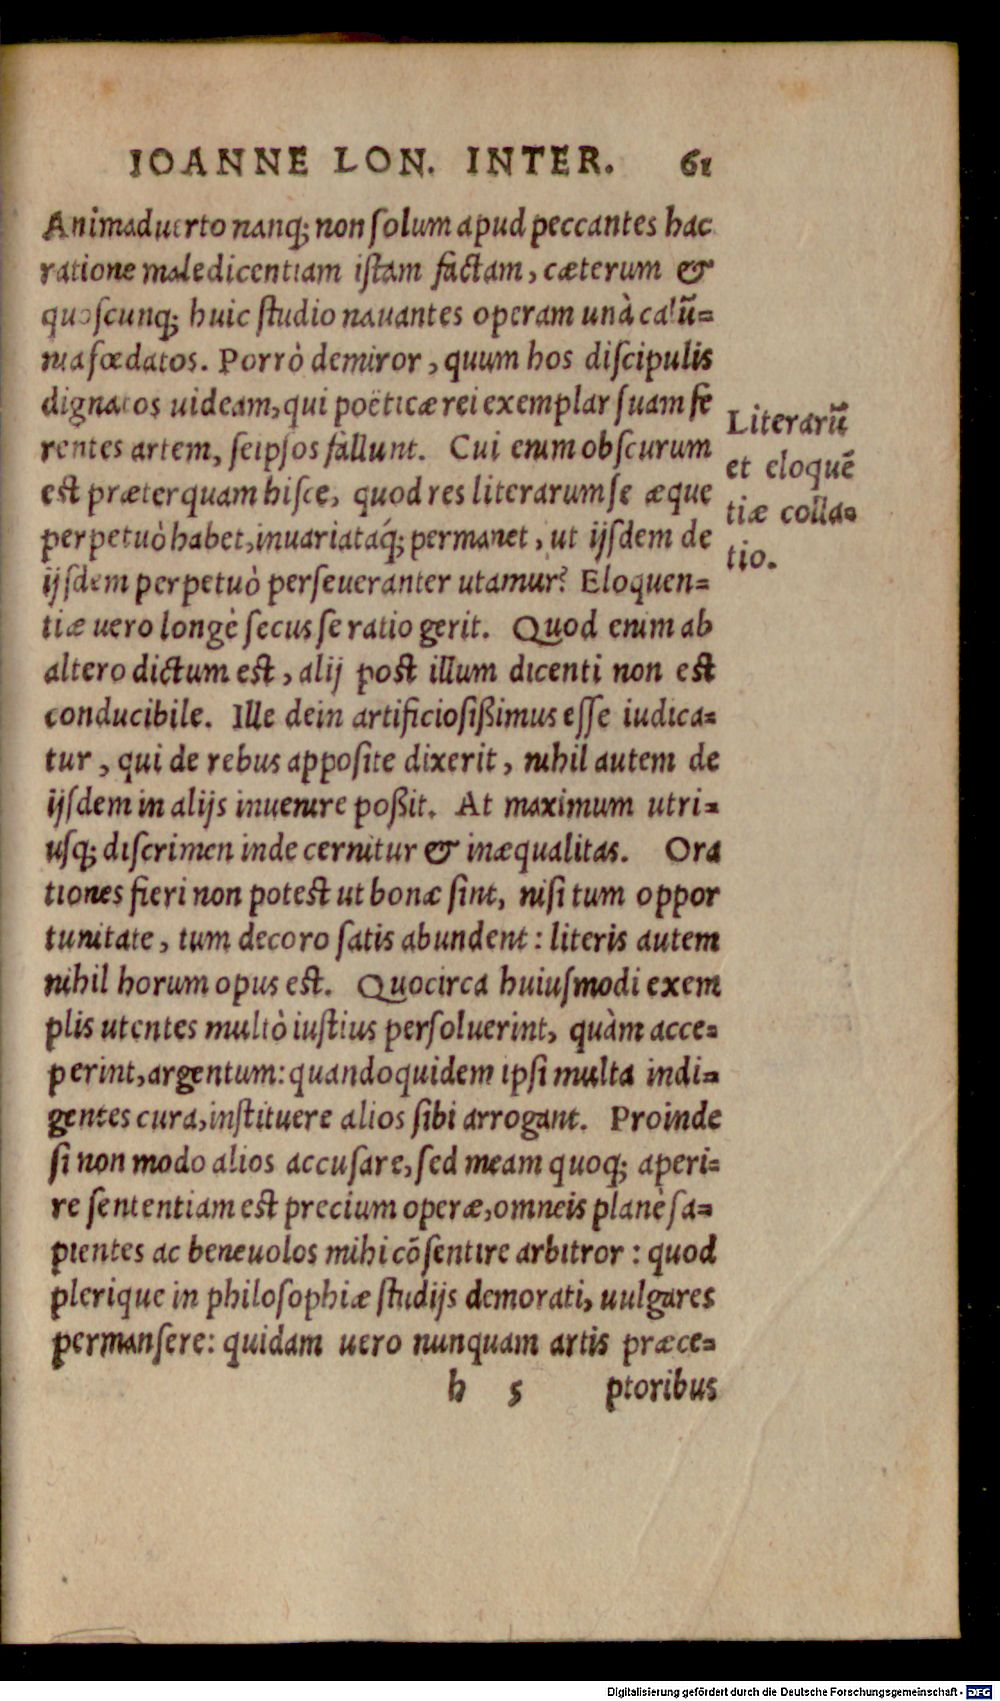 IOANNE LON. INTER. 61
Animaduerto nanq; non ſolum apud peccantes hac
ratione maledicentiam iſtam factam, cæterum &
quoſcunq; huic ſtudio nauantes operam unà calũ=
nia fœdatos. Porrò demiror, quum hos diſcipulis
dignatos uideam, qui poëticæ rei exemplar ſuam fe
rentes artem, ſeipſos fallunt. Cui enim obſcurum
est præterquam hiſce, quod res literarum ſe æque
perpetuò habet, inuariatáq; permanet, ut ijſdem de
ijſdem perpetuò perſeueranter utamur? Eloquen=
tiæ uero longè ſecus ſe ratio gerit. Quod enim ab
altero dictum est, alij post illum dicenti non est
conducibile. Ille dein artificioſißimus eſſe iudica=
tur, qui de rebus appoſite dixerit, nihil autem de
ijſdem in alijs inuenire poßit. At maximum utri=
uſq; diſcrimen inde cernitur & inæqualitas. Ora
tiones fieri non potest ut bonæ ſint, niſi tum oppor
tunitate, tum decoro ſatis abundent: literis autem
nihil horum opus est. Quocirca huiuſmodi exem
plis utentes multò iuſtius perſoluerint, quàm acce=
perint, argentum: quandoquidem ipſi multa indi=
gentes cura, inſtituere alios ſibi arrogant. Proinde
ſi non modo alios accuſare, ſed meam quoq; aperi=
re ſententiam est precium operæ, omneis planè ſa=
pientes ac beneuolos mihi cõſentire arbitror: quod
plerique in philoſophiæ ſtudijs demorati, uulgares
permanſere: quidam uero nunquam artis præce=
h 5 ptoribus
Literarũ
et eloquẽ
tiæ colla=
tio.
Digitalisierung gefördert durch die Deutsche Forschungsgemeinschaft - DFG